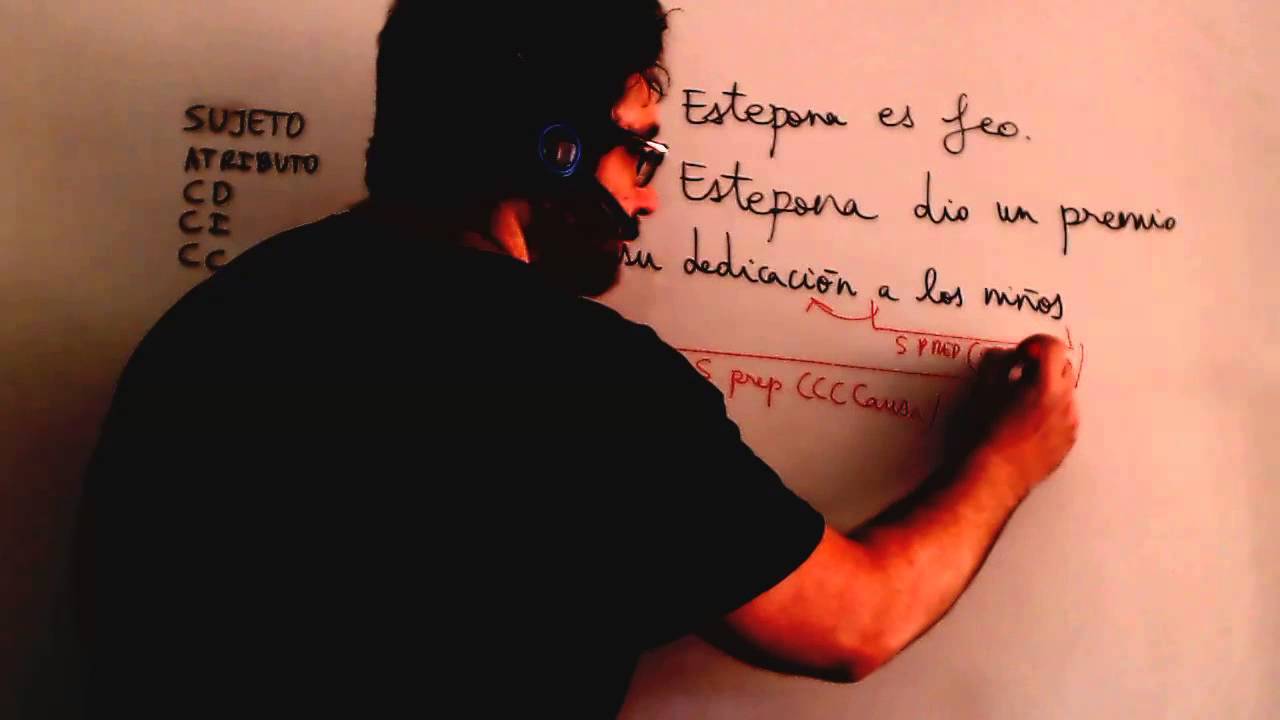 SUJETO
ATRIBUTO
CD
CI
CC
Estepona es feo.
Estepona dio un premio
su dedicación a los niños
S PREP (
S prep (CCCausa)